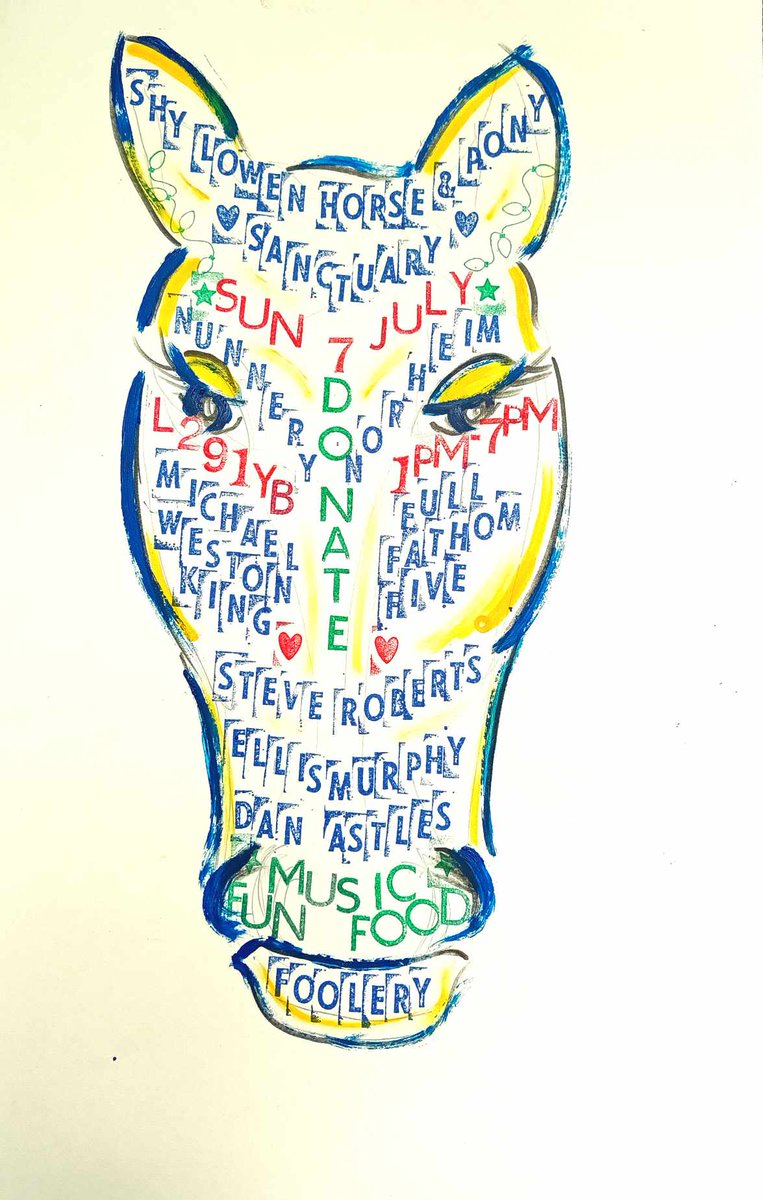 SHY LOWEN HORSE & PONY
SANCTUARY
SUN 7 JULY
NUNNERY NORHEIM
DONATE
L291YB
1PM-7PM
MICHAEL
WESTON
KING
FULL
FATHOM
FIVE
STEVE ROBERTS
ELLIS MURPHY
DAN ASTLES
MUSIC
FUN FOOD
FOOLERY